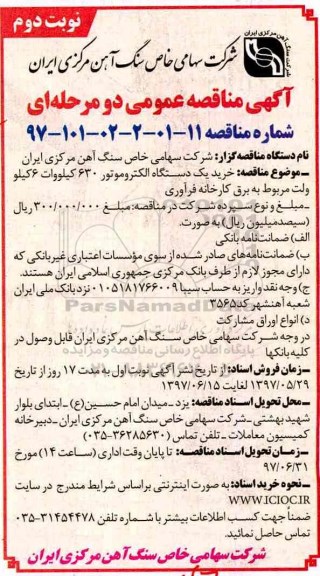 نوبت دوم
شرکت سهامی خاص سنگ آهن مرکزی ایران
شرکت سنگ آهن مرکزی ایران
آگهی مناقصه عمومی دو مرحله‌ای
شماره مناقصه ۱۱-۰۱-۲-۰۲-۱۰۱-۹۷
نام دستگاه مناقصه‌گزار: شرکت سهامی خاص سنگ آهن مرکزی ایران
ـ موضوع مناقصه: خرید یک دستگاه الکتروموتور ۶۳۰ کیلووات ۶ کیلو
ولت مربوط به برق کارخانه فرآوری
ـ مبلغ و نوع سپرده شرکت در مناقصه: مبلغ ۳۰۰/۰۰۰/۰۰۰ ریال
(سیصدمیلیون ریال) به صورت.
الف) ضمانت‌نامه بانکی
ب) ضمانت‌نامه‌های صادر شده از سوی مؤسسات اعتباری غیربانکی که
دارای مجوز لازم از طرف بانک مرکزی جمهوری اسلامی ایران هستند.
ج) وجه نقد واریز به حساب سیبا ۰۱۰۵۱۸۱۷۶۶۰۰۹ نزد بانک ملی ایران
شعبه آهنشهر کد ۳۵۶۵
د) انواع اوراق مشارکت
در وجه شرکت سهامی خاص سنگ آهن مرکزی ایران قابل وصول در
کلیه بانکها
ـ زمان فروش اسناد: از تاریخ نشر آگهی نوبت اول به مدت ۱۷ روز از تاریخ
۱۳۹۷/۰۵/۲۹ لغایت ۱۳۹۷/۰۶/۱۵
ـ محل تحویل اسناد مناقصه: یزد ـ میدان امام حسین(ع) ـ ابتدای بلوار
شهید بهشتی ـ شرکت سهامی خاص سنگ آهن مرکزی ایران ـ دبیرخانه
کمیسیون معاملات ـ تلفن تماس (۳۶۲۸۵۶۳۰-۰۳۵)
ـ زمان تحویل اسناد مناقصه: تا پایان وقت اداری (ساعت ۱۴) مورخ
۹۷/۰۶/۳۱
ـ نحوه خرید اسناد: به صورت اینترنتی براساس شرایط مندرج در سایت
WWW.ICIOC.IR
ضمناً جهت کسب اطلاعات بیشتر با شماره تلفن ۳۱۴۵۴۴۷۸-۰۳۵
تماس حاصل نمائید.
شرکت سهامی خاص سنگ آهن مرکزی ایران
ParsNamadData
پایگاه اطلاع رسانی مناقصه و مزایده